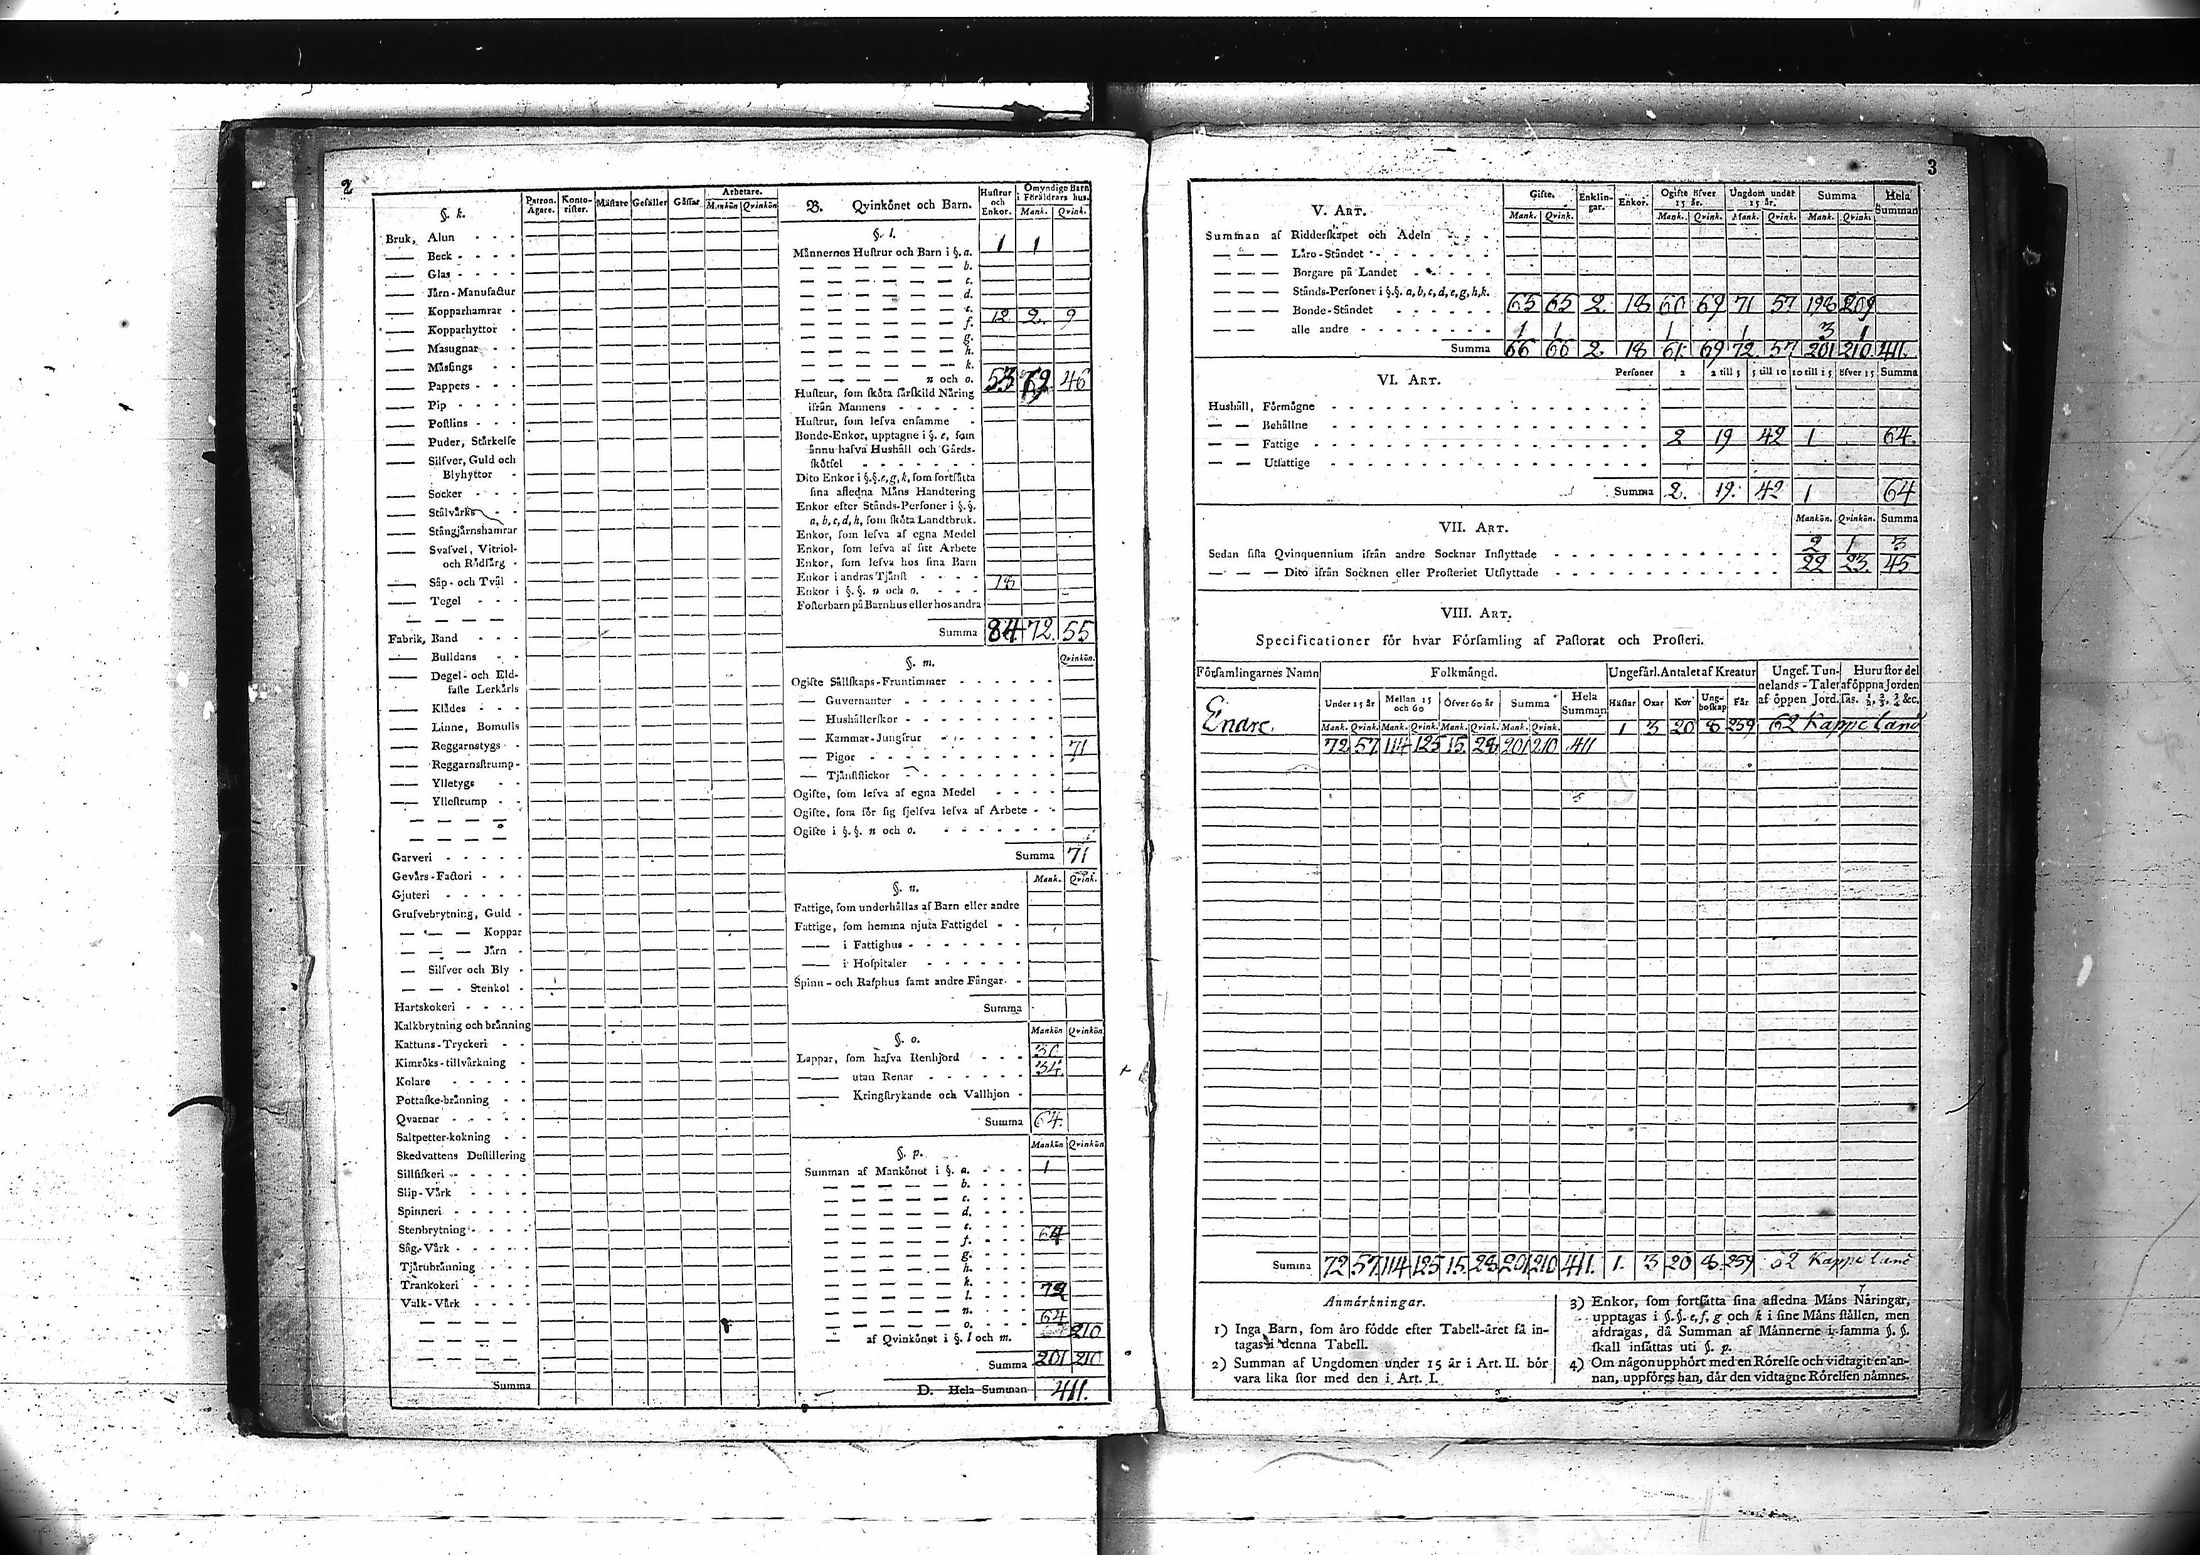 2
§. k.
Patron. Ägare.
Konto-rister.
Mästare
Gesäller
Gåssar
Arbetare.
Mankön
Qvinkön
Bruk, Alun
Beck
Glas
Järn-Manufactur
Kopparhamrar
Kopparhyttor
Masugnar
Mässings
Pappers
Pip
Postlins
Puder, Stärkelse
Silfver, Guld och
Blyhyttor
Socker
Stålvärks
Stångjärnshamrar
Svafvel, Vitriol-
och Rödfärg
Såp- och Tvål
Tegel
Fabrik, Band
Bulldans
Degel- och Eld-
faste Lerkärls
Klädes
Linne, Bomulls
Reggarnstygs
Reggarnsstrump
Ylletygs
Yllestrump
Garveri
Gevärs-Factori
Gjuteri
Grufvebrytning, Guld
Koppar
Järn
Silfver och Bly
Stenkol
Hartskokeri
Kalkbrytning och bränning
Kattuns-Tryckeri
Kimröks-tillvärkning
Kolare
Pottaske-bränning
Qvarnar
Saltpetter-kokning
Skedvattens Destillering
Sillfiskeri
Slip-Värk
Spinneri
Stenbrytning
Såg-Värk
Tjärubränning
Trankokeri
Valk-Värk
Summa
B. Qvinkönet och Barn.
Hustrur och Enkor.
Omyndige Barn i Föräldrars hus.
Mank. Qvink.
§. l.
Männernes Hustrur och Barn i §. a. 1 1
b.
c.
d.
e.
f. 12 2. 9
g.
h.
k.
n och o. 53 72. 46
Hustrur, som sköta särskild Näring
ifrån Mannens
Hustrur, som lefva ensamme
Bonde-Enkor, upptagne i §. e, som
ännu hafva Hushåll och Gårds-
skötsel
Dito Enkor i §.§. e, g, k, som fortsätta
sina afledna Mäns Handtering
Enkor efter Stånds-Personer i §.§.
a, b, c, d, h, som sköta Landtbruk.
Enkor, som lefva af egna Medel
Enkor, som lefva af sitt Arbete
Enkor, som lefva hos sina Barn
Enkor i andras Tjänst 18
Enkor i §. §. n och o.
Fosterbarn på Barnhus eller hos andra
Summa 84. 72. 55
§. m. Qvinkön.
Ogifte Sällskaps-Fruntimmer
Guvernanter
Hushållerskor
Kammar-Jungfrur
Pigor 71
Tjänstflickor
Ogifte, som lefva af egna Medel
Ogifte, som för sig sjelfva lefva af Arbete
Ogifte i §. §. n och o.
Summa 71
§. n. Mank. Qvink.
Fattige, som underhållas af Barn eller andre
Fattige, som hemma njuta Fattigdel
i Fattighus
i Hospitaler
Spinn- och Rasphus samt andre Fångar
Summa
§. o. Mankön Qvinkön
Lappar, som hafva Renhjord 30
utan Renar 34.
Kringstrykande och Vallhjon
Summa 64.
§. p. Mankön Qvinkön
Summan af Mankönet i §. a. 1
b.
c.
d.
e.
f. 64
g.
h.
k.
l. 72
n.
o. 64
af Qvinkönet i §. l och m. 210
Summa 201 210
D. Hela Summan 411.
3
V. Art.
Gifte. Mank. Qvink.
Enklin-gar.
Enkor.
Ogifte öfver 15 år. Mank. Qvink.
Ungdom under 15 år. Mank. Qvink.
Summa Mank. Qvink.
Hela Summan
Summan af Ridderskapet och Adeln
Läro-Ståndet
Borgare på Landet
Stånds-Personer i §.§. a, b, c, d, e, g, h, k.
Bonde-Ståndet 65 65 2. 18 60 69 71 57 198 209
alle andre 1 1 1 1 3 1
Summa 66 66 2. 18 61. 69 72. 57 201 210 411.
VI. Art. Personer 2 2 till 5 5 till 10 10 till 15 öfver 15 Summa
Hushåll, Förmögne
Behållne
Fattige 2 19 42 1 64.
Utfattige
Summa 2. 19. 42 1 64
VII. Art. Mankön. Qvinkön. Summa
Sedan sista Qvinquennium ifrån andre Socknar Inflyttade 2 1 3
Dito ifrån Socknen eller Prosteriet Utflyttade 22 23. 45
VIII. Art.
Specificationer för hvar Församling af Pastorat och Prosteri.
Församlingarnes Namn
Folkmängd.
Ungefärl. Antalet af Kreatur
Ungef. Tun-nelands-Talet af öppen Jord.
Huru stor del af öppna Jorden Tas. 1/2, 2/3, 3/4 &c.
Under 15 år
Mellan 15 och 60
Öfver 60 år
Summa
Hela Summan
Hästar
Oxar
Kor
Ung-boskap
Får
Mank. Qvink. Mank. Qvink. Mank. Qvink. Mank. Qvink.
Endre. 1 3 20 8 259 62 Kappeland
72 57 114 125 15. 28 201 210 411
Summa 72 57. 114 125 15. 28 201 210 411. 1. 3 20 8. 259 62 Kappeland
Anmärkningar.
1) Inga Barn, som äro födde efter Tabell-året få in-
tagas i denna Tabell.
2) Summan af Ungdomen under 15 år i Art. II. bör
vara lika stor med den i Art. I.
3) Enkor, som fortsätta sina afledna Mäns Näringar,
upptagas i §.§. e, f, g och k i sine Mäns ställen, men
afdragas, då Summan af Männerne i samma §. §.
skall insättas uti §. p.
4) Om någon upphört med en Rörelse och vidtagit en an-
nan, uppföres han, där den vidtagne Rörelsen nämnes.